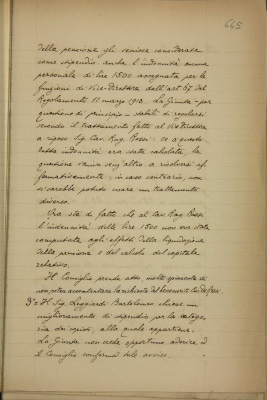 665
della pensione gli venisse considerata
come stipendio anche l'indennità annua
personale di lire 1500 assegnata per le
funzioni di Vice-Direttore dell'art. 67 del
Regolamento 11 marzo 1913. La Giunta - per
questione di principio - stabilì di regolarsi
secondo il trattamento fatto al Vice Direttore
a riposo Sig. Cav. Rag. Rossi: se a questo
tutta indennità era stata calcolata, la
questione veniva senz'altro a risolversi af-
fermativamente; in caso contrario, non
si sarebbe potuto usare un trattamento
diverso.
Ora sta di fatto che al Cav. Rag. Rossi
l'indennità delle lire 1500 non era stata
computata agli effetti della liquidazione
della pensione e del calcolo del capitale
relativo.
Il Consiglio prende atto
non poter accontentare la richiesta del
3° Il Sig. Leggiardi Bartolomeo chiese un
miglioramento di stipendio per la catego-
ria dei alla quale appartiene.
La Giunta non crede opportuno aderire ed
il Consiglio conferma tale avviso.